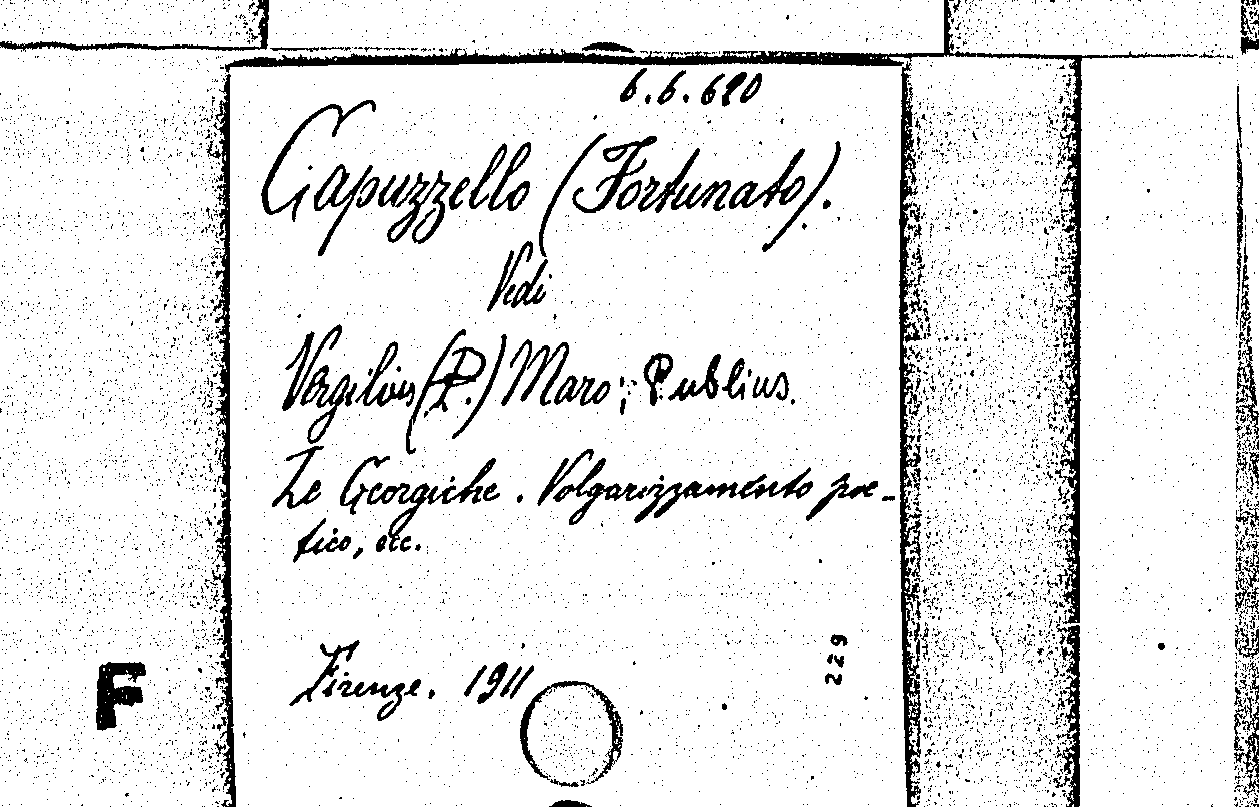 6.6.620
Capuzzello (Fortunato).
Vedi
Vergilius (P.) Maro; Publius.
Le Georgiche. Volgarizzamento poe-
tico, ecc.
Firenze. 1911
229
F